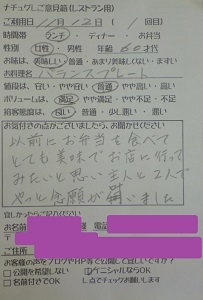 ナチュグルご意見箱(レストラン用)
ご利用日 11月12日 (1回目)
時間帯 ランチ・ディナー・お弁当
性別 女性・男性 年齢 60才代
お味は 美味しい・普通・あまり美味しくない・まずい
お料理名 バランスプレート
値段は 安い・やや安い・普通・やや高い・高い
ボリュームは 満足・やや満足・やや不足・不足
接客態度は 良い・普通・少し悪い・悪い
お気付きの点がございましたら、お聞かせください
以前にお弁当を食べて
とても美味でお店に行って
みたいと思い主人と2人で
やっと念願が叶いました
宜しかったらご記入ください
お名前 様 電話
〒
ご住所
お客様の声をブログやHP等で公開して宜しいですか?
□公開を希望しない □イニシャルならOK
□名前付きでOK レ点でチェックお願いします